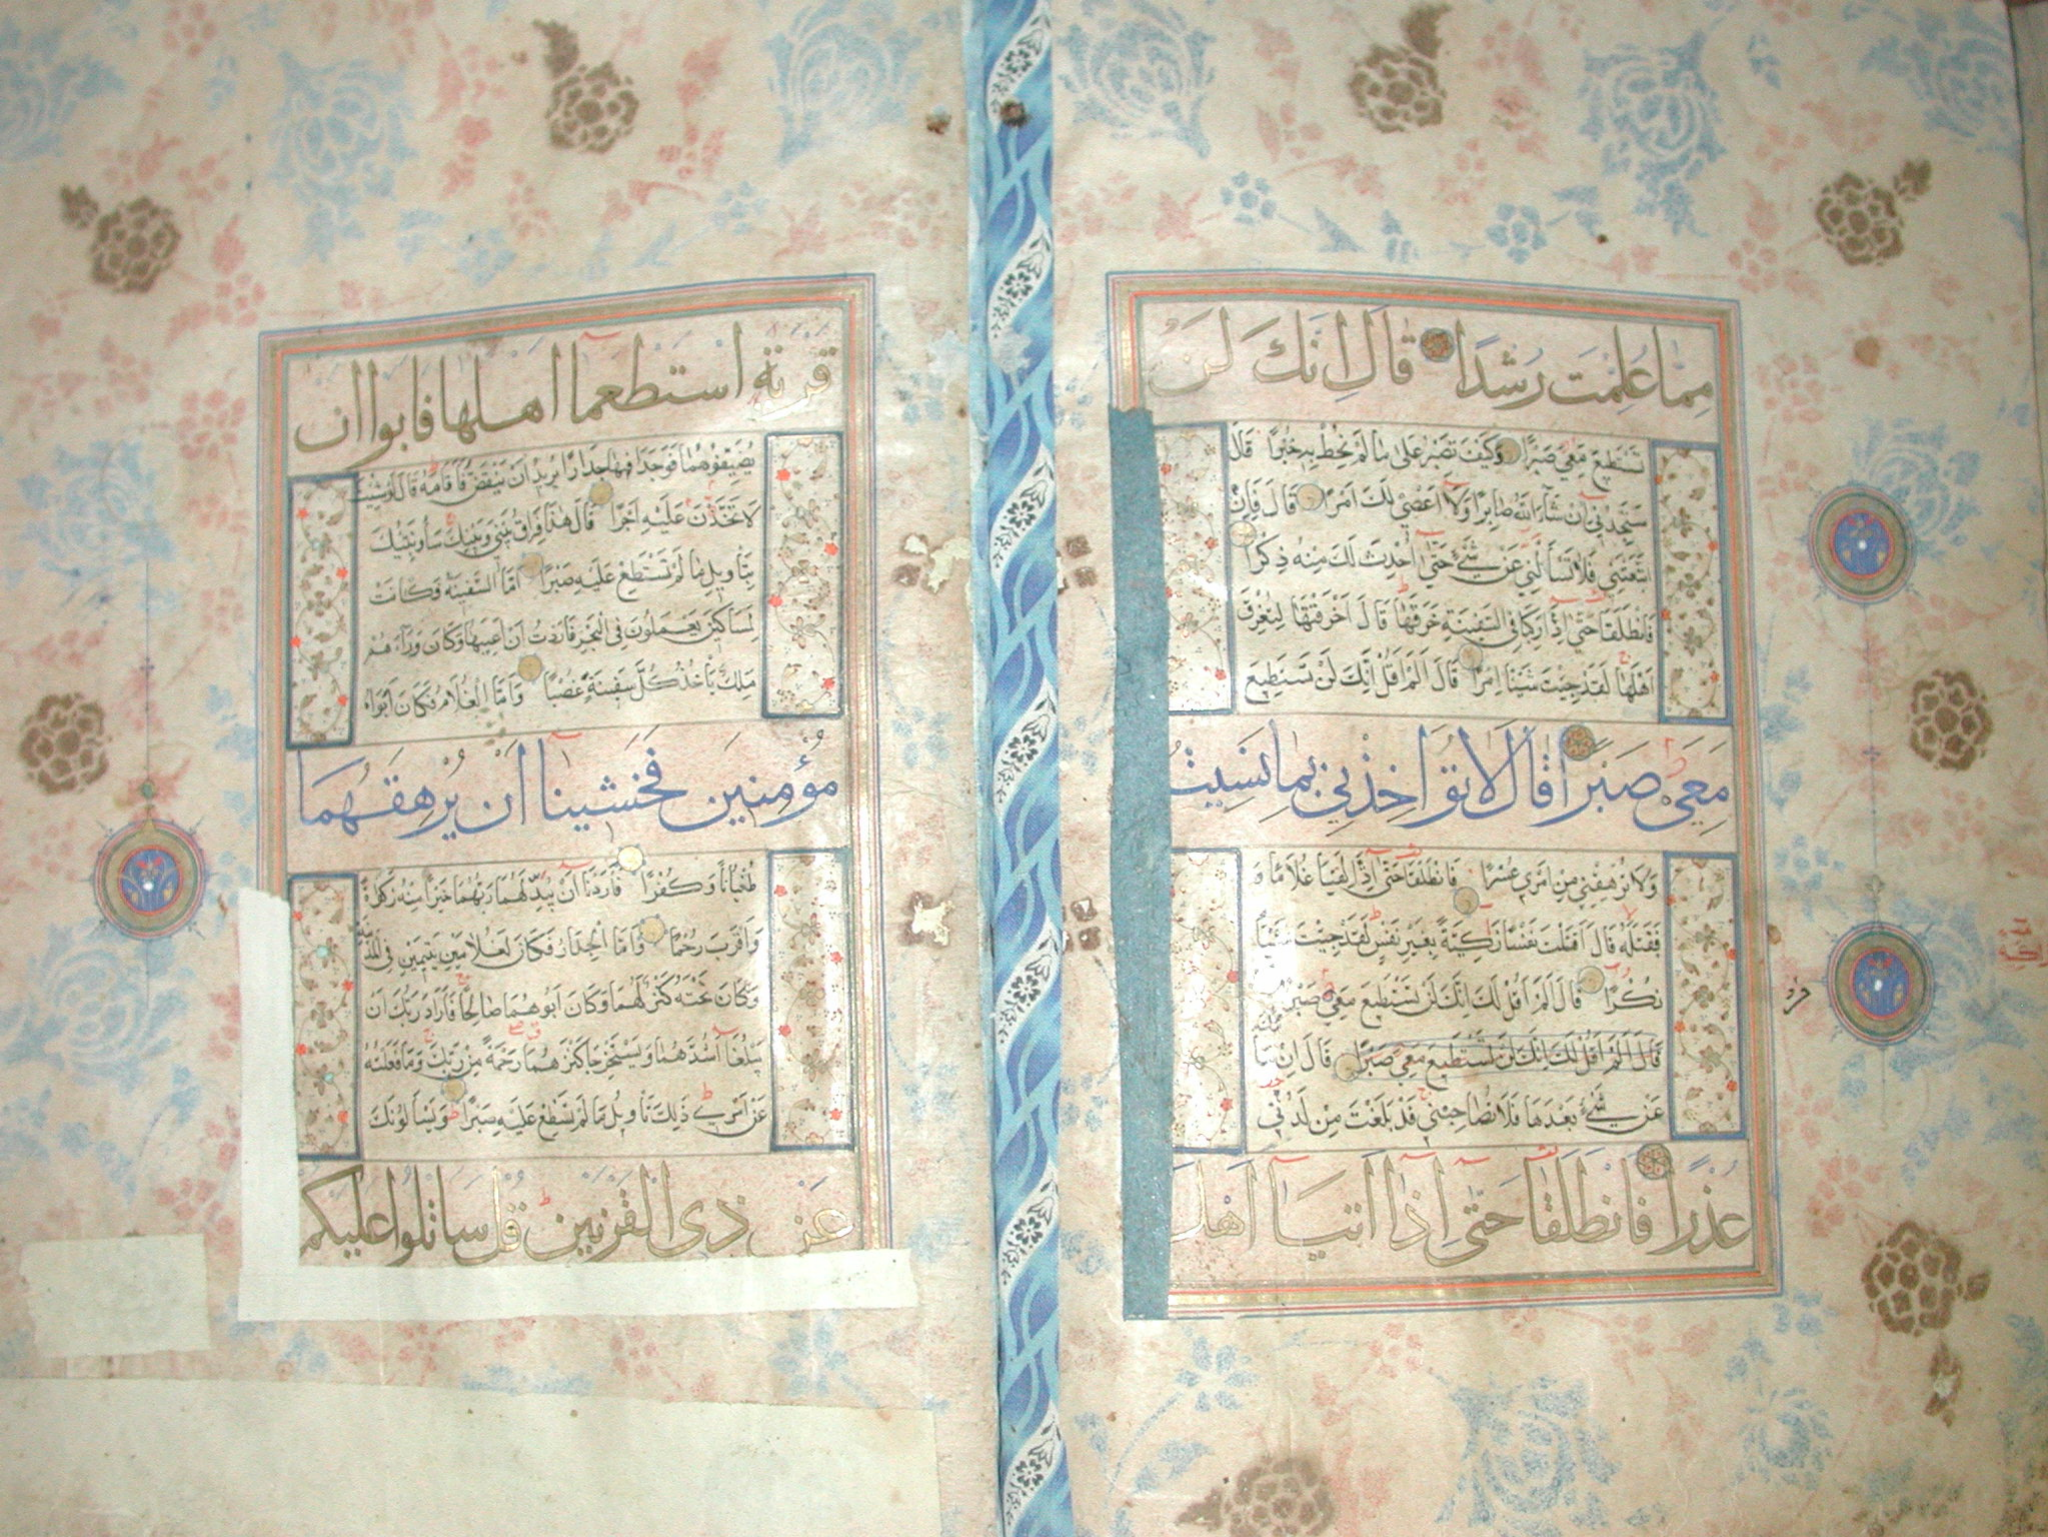 مِمَّا عُلِّمْتَ رُشْدًا قَالَ اِنَّكَ لَنْ
تَسْتَطِيعَ مَعِيَ صَبْرًا وَكَيْفَ تَصْبِرُ عَلٰى مَا لَمْ تُحِطْ بِهِ خُبْرًا قَالَ
سَتَجِدُنِي اِنْ شَآءَ اللّٰهُ صَابِرًا وَلَا اَعْصِي لَكَ اَمْرًا قَالَ فَاِنِ
اتَّبَعْتَنِي فَلَا تَسْأَلْنِي عَنْ شَيْءٍ حَتّٰى اُحْدِثَ لَكَ مِنْهُ ذِكْرًا
فَانْطَلَقَا حَتّٰى اِذَا رَكِبَا فِي السَّفِينَةِ خَرَقَهَا قَالَ اَخَرَقْتَهَا لِتُغْرِقَ
اَهْلَهَا لَقَدْ جِئْتَ شَيْئًا اِمْرًا قَالَ اَلَمْ اَقُلْ اِنَّكَ لَنْ تَسْتَطِيعَ
مَعِيَ صَبْرًا قَالَ لَا تُؤَاخِذْنِي بِمَا نَسِيتُ
وَلَا تُرْهِقْنِي مِنْ اَمْرِي عُسْرًا فَانْطَلَقَا حَتّٰى اِذَا لَقِيَا غُلَامًا وَ
فَقَتَلَهُ قَالَ اَقَتَلْتَ نَفْسًا زَكِيَّةً بِغَيْرِ نَفْسٍ لَقَدْ جِئْتَ شَيْئًا
نُكْرًا قَالَ اَلَمْ اَقُلْ لَكَ اِنَّكَ لَنْ تَسْتَطِيعَ مَعِيَ صَبْرًا
قَالَ اَلَمْ اَقُلْ لَكَ اِنَّكَ لَنْ تَسْتَطِيعَ مَعِيَ صَبْرًا قَالَ اِنْ سَاَ
عَنْ شَيْءٍ بَعْدَهَا فَلَا تُصَاحِبْنِي قَدْ بَلَغْتَ مِنْ لَدُنِّي
عُذْرًا فَانْطَلَقَا حَتّٰى اِذَا اَتَيَا اَهْلَ
قَرْيَةٍ اسْتَطْعَمَا اَهْلَهَا فَاَبَوْا اَنْ
يُضَيِّفُوهُمَا فَوَجَدَا فِيهَا جِدَارًا يُرِيدُ اَنْ يَنْقَضَّ فَاَقَامَهُ قَالَ لَوْ شِئْتَ
لَاتَّخَذْتَ عَلَيْهِ اَجْرًا قَالَ هٰذَا فِرَاقُ بَيْنِي وَبَيْنِكَ سَاُنَبِّئُكَ
بِتَأْوِيلِ مَا لَمْ تَسْتَطِعْ عَلَيْهِ صَبْرًا اَمَّا السَّفِينَةُ فَكَانَتْ
لِمَسَاكِينَ يَعْمَلُونَ فِي الْبَحْرِ فَاَرَدْتُ اَنْ اَعِيبَهَا وَكَانَ وَرَآءَهُمْ
مَلِكٌ يَأْخُذُ كُلَّ سَفِينَةٍ غَصْبًا وَاَمَّا الْغُلَامُ فَكَانَ اَبَوَاهُ
مُؤْمِنَيْنِ فَخَشِينَا اَنْ يُرْهِقَهُمَا
طُغْيَانًا وَكُفْرًا فَاَرَدْنَا اَنْ يُبَدِّلَهُمَا رَبُّهُمَا خَيْرًا مِنْهُ زَكٰوةً
وَاَقْرَبَ رُحْمًا وَاَمَّا الْجِدَارُ فَكَانَ لِغُلَامَيْنِ يَتِيمَيْنِ فِي الْمَدِينَةِ
وَكَانَ تَحْتَهُ كَنْزٌ لَهُمَا وَكَانَ اَبُوهُمَا صَالِحًا فَاَرَادَ رَبُّكَ اَنْ
يَبْلُغَا اَشُدَّهُمَا وَيَسْتَخْرِجَا كَنْزَهُمَا رَحْمَةً مِنْ رَبِّكَ وَمَا فَعَلْتُهُ
عَنْ اَمْرِي ذٰلِكَ تَأْوِيلُ مَا لَمْ تَسْطِعْ عَلَيْهِ صَبْرًا وَيَسْأَلُونَكَ
عَنْ ذِي الْقَرْنَيْنِ قُلْ سَاَتْلُوا عَلَيْكُمْ